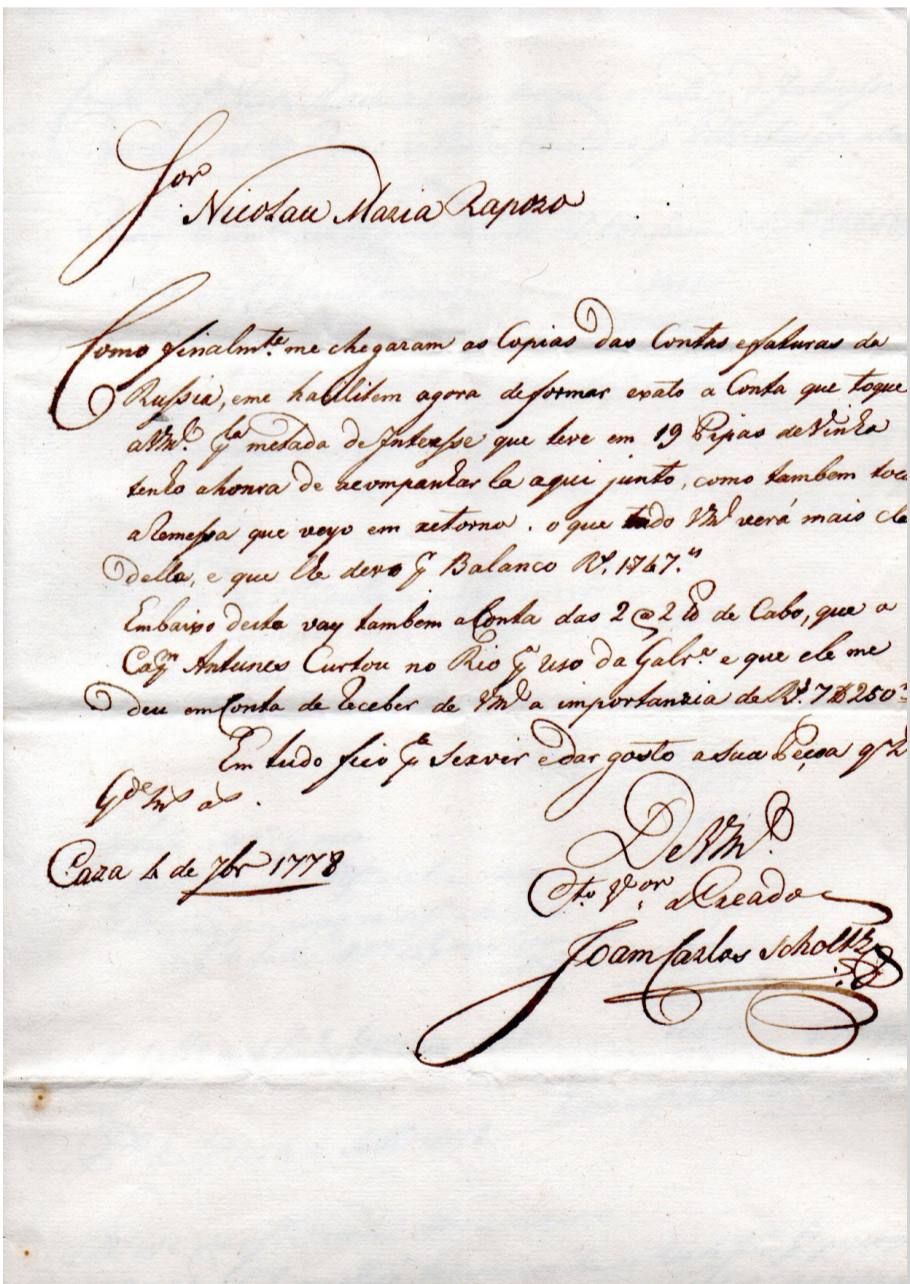 Sor
Nicolau Maria Rapozo
Como finalmte. me chegaram as Copias das Contas efaturas da
Russia, eme habilitem agora deformar exato a Conta que toque
aVmce. pla metada de Interesse que teve em 19 Pipas deVinho
tenho ahonra de acompanhar la aqui junto, como tambem toca
aRemessa que veyo em retorno. o que tudo Vmce verá mais cle
della, e que lhe devo pr Balanco Rs. 1747.
Embaixo desta vay tambem aConta das 2 @ 2 lb de Cabo, que o
Capm Antunes Curtou no Rio pa Uso da Galre. e que ele me
deu emConta de Receber de Vmce a importanzia de Rs. 7$250
Em tudo fico pa Servir edar gosto a sua Peçoa q Ds
Gde ms as.
Caza 4 de 7br 1778
De Vmce.
Mto. Vor. a Creado
Joam Carlos Scholtz